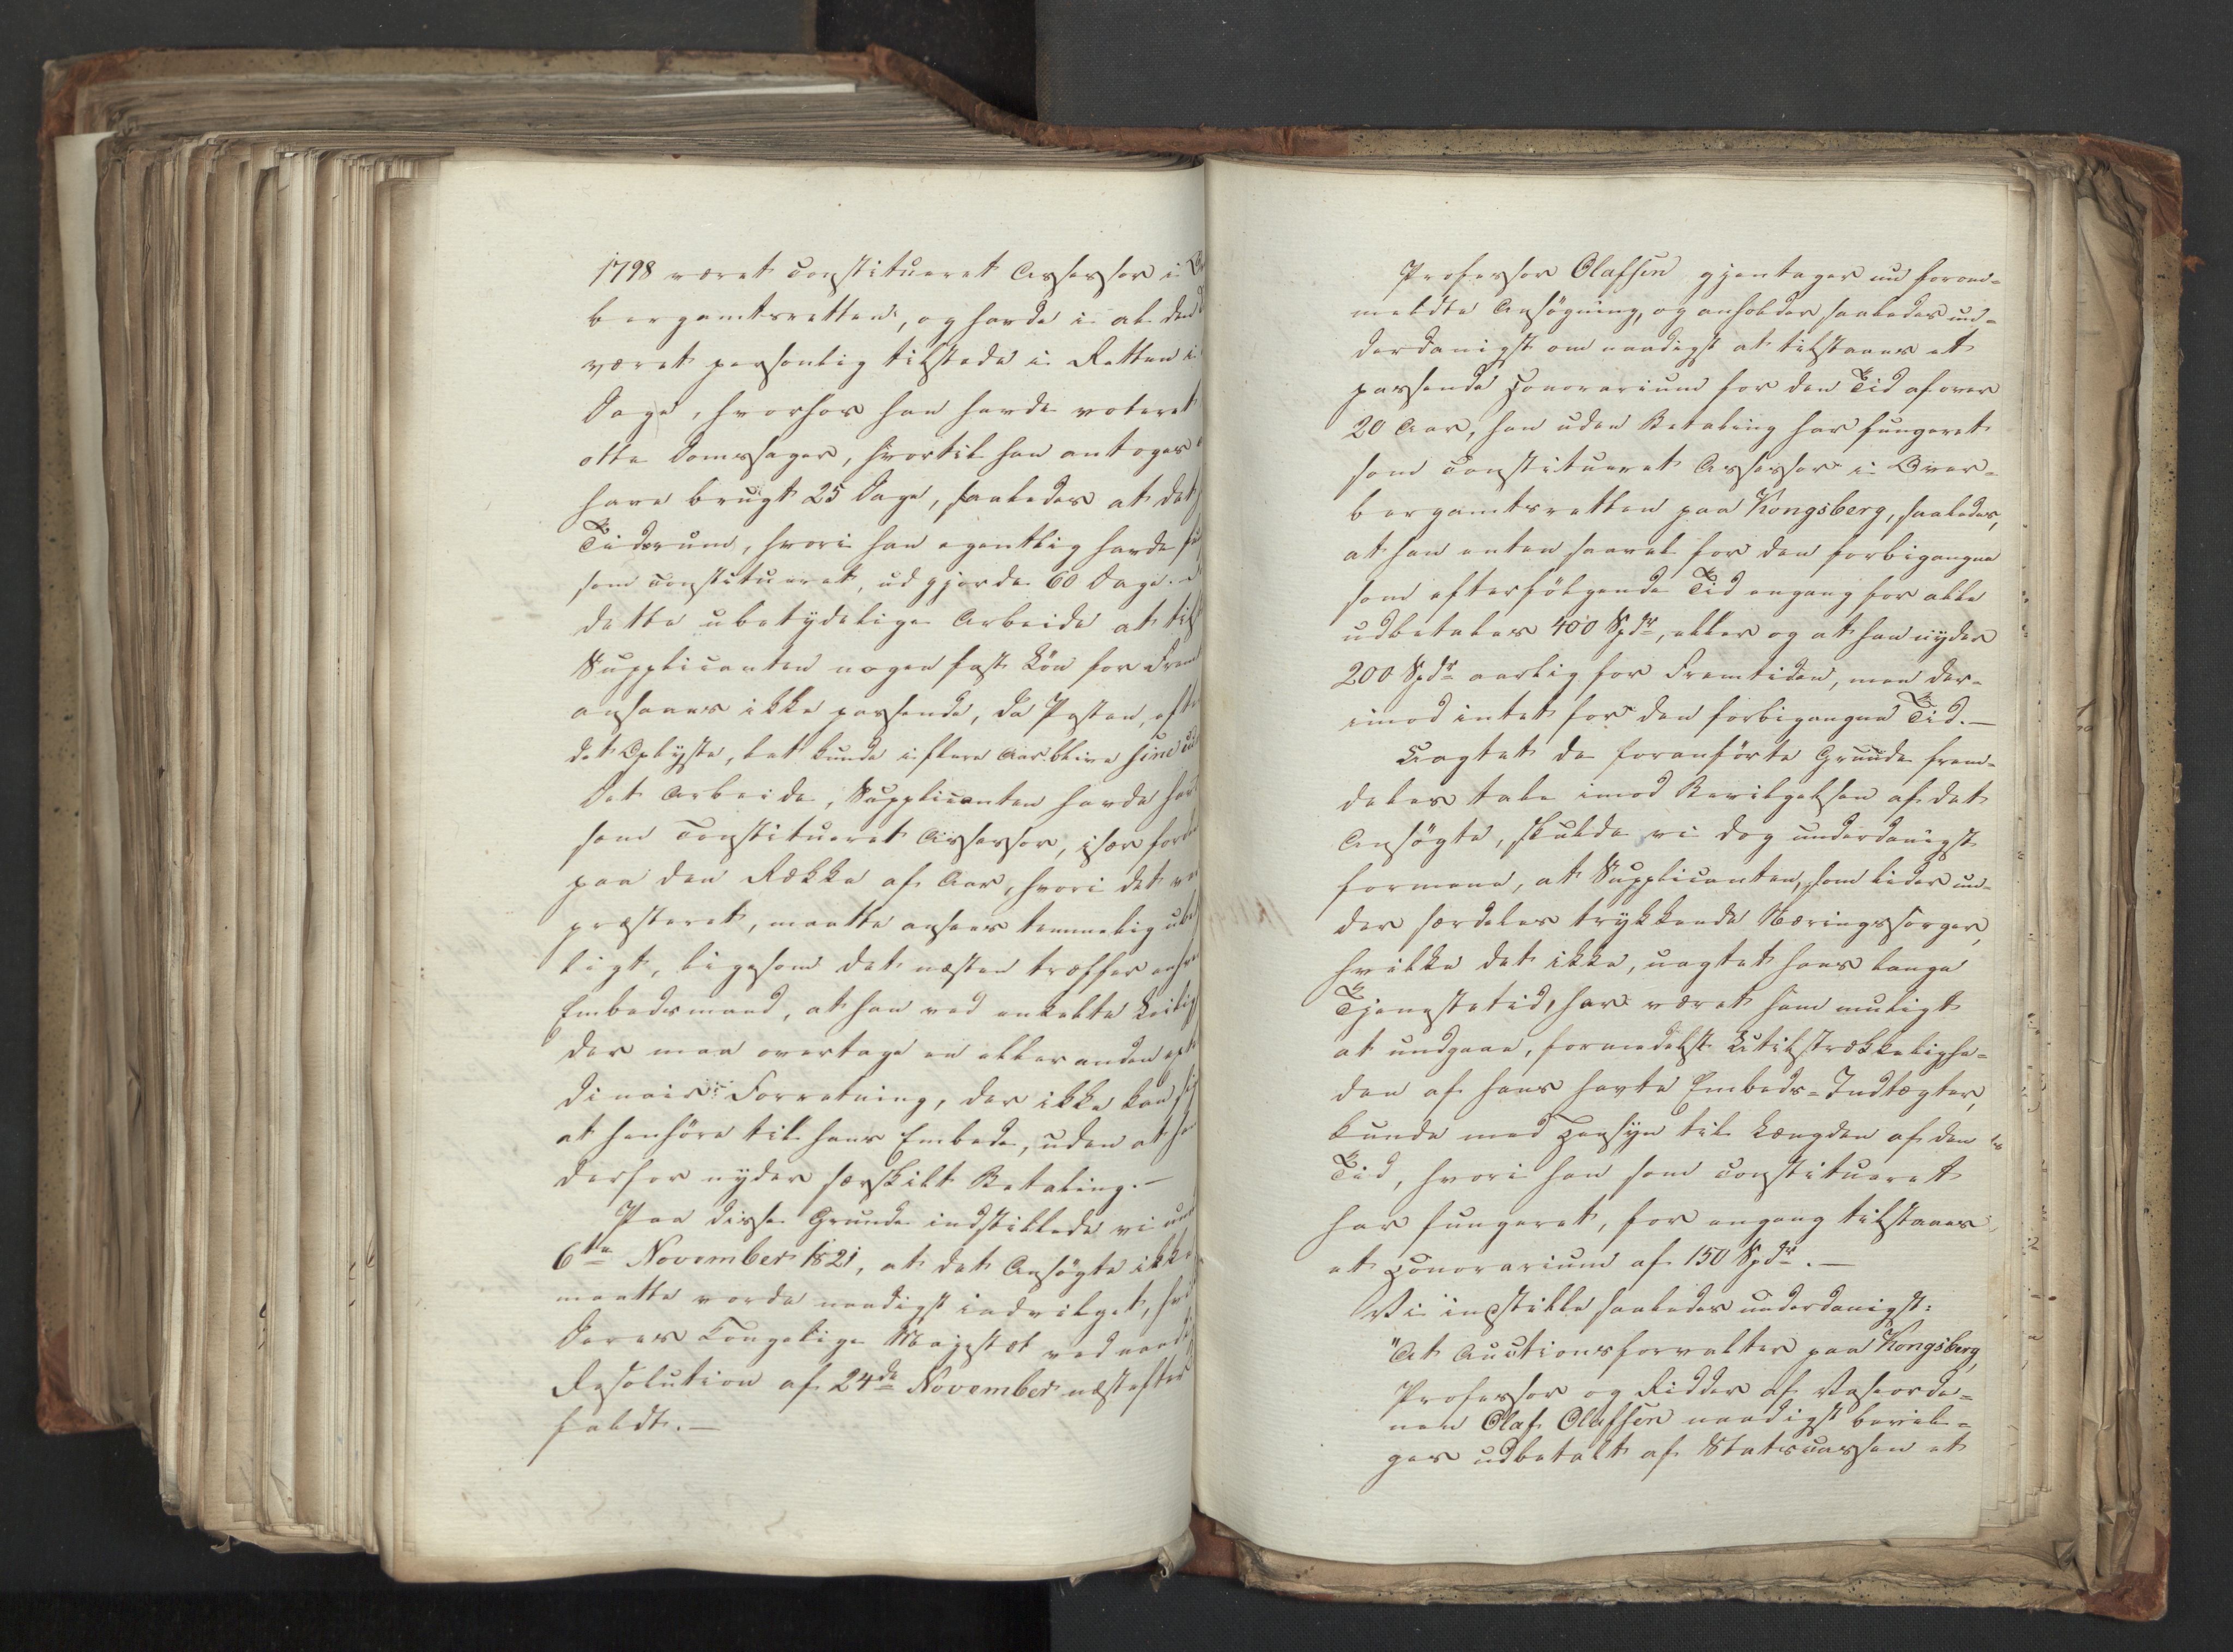 1798 været constitueret Assessor i
bergamtsretten, og havde i al den
været personlig tilstede i Retten i
Dage, hvorhos han havde voteret
otte Domssager, hvortil han antoges
have brugt 25 Dage, saaledes at det
Tidsrum, hvori han egentlig havde
som constitueret, udgjorde 60 Dage.
dette ubetydelige Arbeide at
Supplicanten nogen fast Løn for
ansaaes ikke passende, da Posten,
det Oplyste, let kunde i flere Aar blive sine
Det Arbeide, Supplicanten havde
som constitueret Assessor, især
paa den Række af Aar, hvori det
præsteret, maatte ansees temmelig
ligt, ligesom det næsten træffer
Embedsmand, at han ved enkelte
der maa overtage en eller anden
dinair Forretning, der ikke kan
at henhöre til hans Embede, uden at
derfor nyder særskilt Betaling.—
Paa disse Grunde indstillede vi
6te November 1821, at det Ansøgte ikke
maatte vorde naadigst indvilget,
Deres Kongelige Majestæt ved
Resolution af 24de November næstefter
faldt.—
Professor Olafsen gjentager nu forom-
meldte Ansögning, og anholder saaledes un-
derdanigst om naadigst at tilstaaes et
passende Honorarium for den Tid af over
20 Aar, han uden Betaling har fungeret
som constitueret Assessor i Over-
bergamtsretten paa Kongsberg, saaledes,
at han enten saavel for den forbigangne
som efterfölgende Tid engang for alle
udbetales 400 Spdr, eller og at han nyder
200 Spdr aarlig for Fremtiden, men der-
imod intet for den forbigangne Tid.—
Uagtet de foranförte Grunde frem-
deles tale imod Bevilgelsen af det
Ansögte, skulde vi dog underdanigst
formene, at Supplicanten, som lider un-
der særdeles trykkende Næringssorger,
hvilke det ikke, uagtet hans lange
Tjenestetid, har været ham muligt
at undgaae, formedelst Utilstrækkelighe-
den af hans havte Embeds-Indtægter,
kunde med Hensyn til Længden af den
Tid, hvori han som constitueret
har fungeret, for engang tilstaaes
et Honorarium af 150 Spdr.—
Vi indstille saaledes underdanigst:
"At Auctionsforvalter paa Kongsberg,
Professor og Ridder af Vasaorde-
nen Olaf Olafsen naadigst bevil-
ges udbetalt af Statscassen et